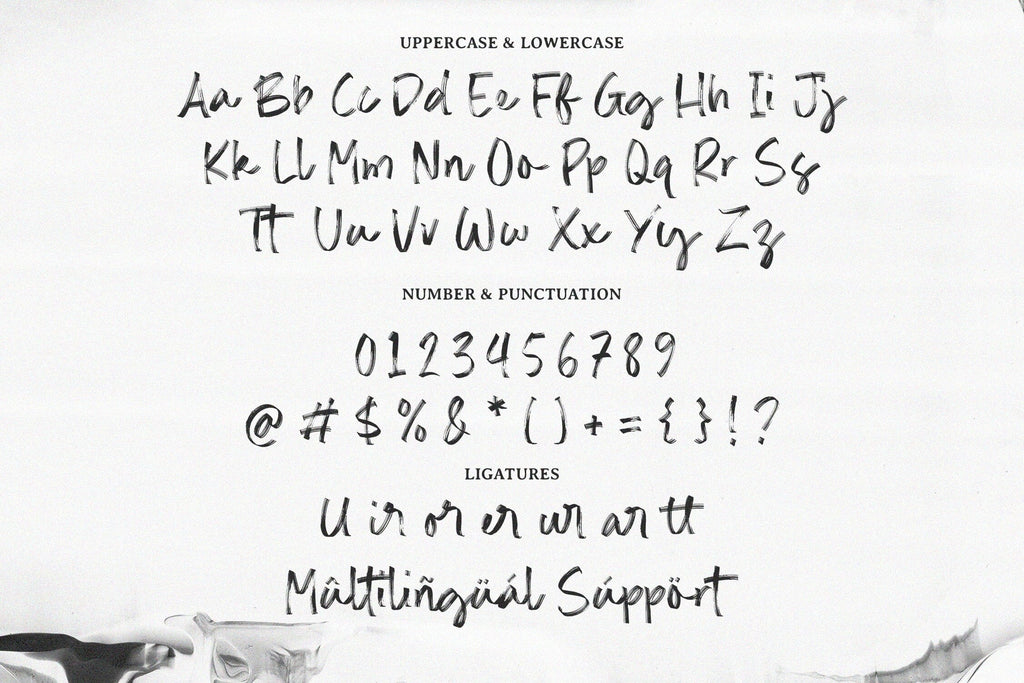 UPPERCASE & LOWERCASE
Aa Bb Cc Dd Ee Ff Gg Hh Ii Jj
Kk Ll Mm Nn Oo Pp Qq Rr Ss
Tt Uu Vv Ww Xx Yy Zz
NUMBER & PUNCTUATION
0123456789
@ # $ % & * ( ) + = { } ! ?
LIGATURES
ll ir or er ur ar tt
Mûltiliñgüál Súppört